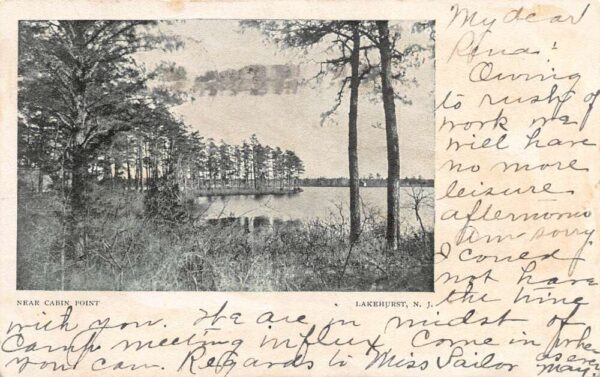 My dear
Rena:
Owing
to rush of
work we
will have
no more
leisure
afternoons
Am sorry
I could
not have
the time
NEAR CABIN POINT
LAKEHURST, N. J.
with you. We are in midst of
Camp meeting influx. Come in when
you can. Regards to Miss Sailor
as ever
May.